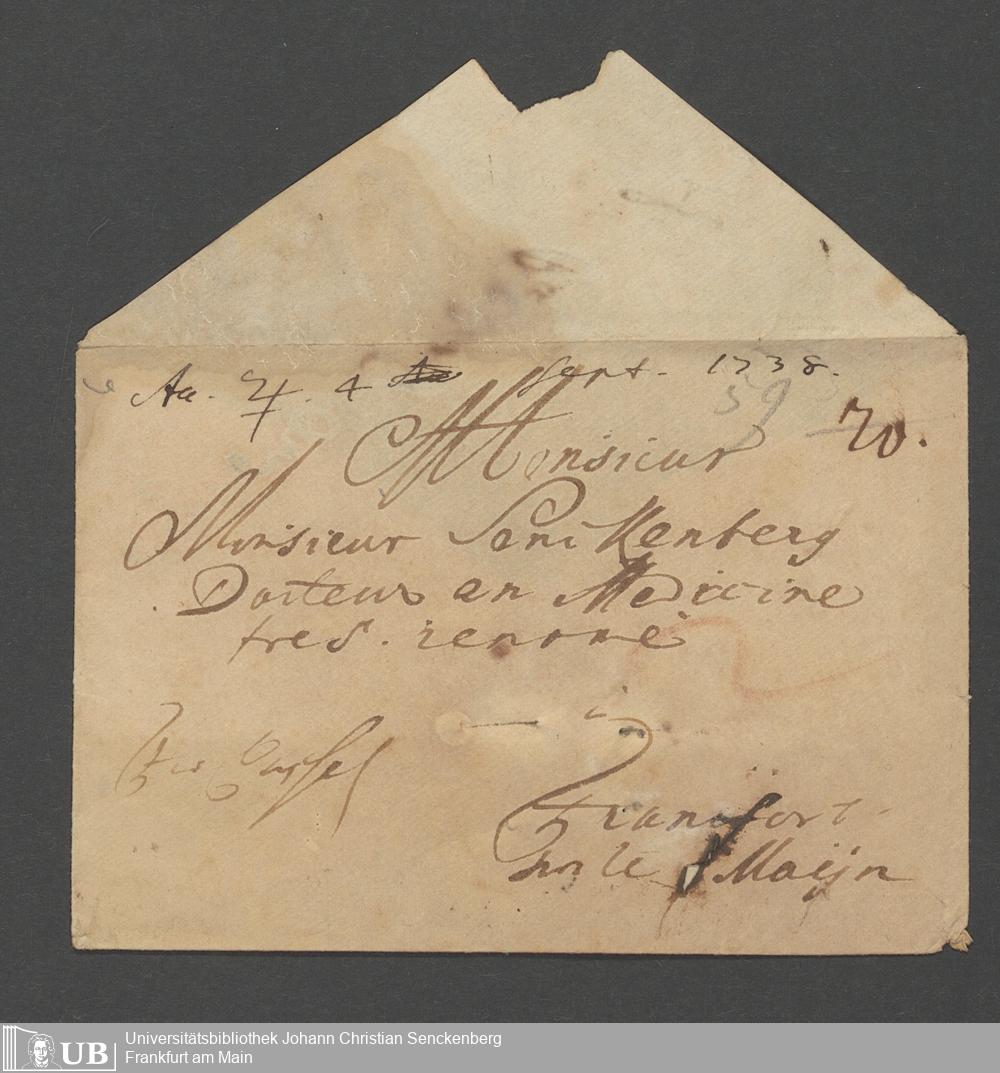 Aa. ♃. 4 Sept. 1738.
59
70.
Monsieur
Monsieur Senikenberg
Docteur en Medicine
tres. renomé
Francfort
sur le Maijn
UB
Universitätsbibliothek Johann Christian Senckenberg
Frankfurt am Main